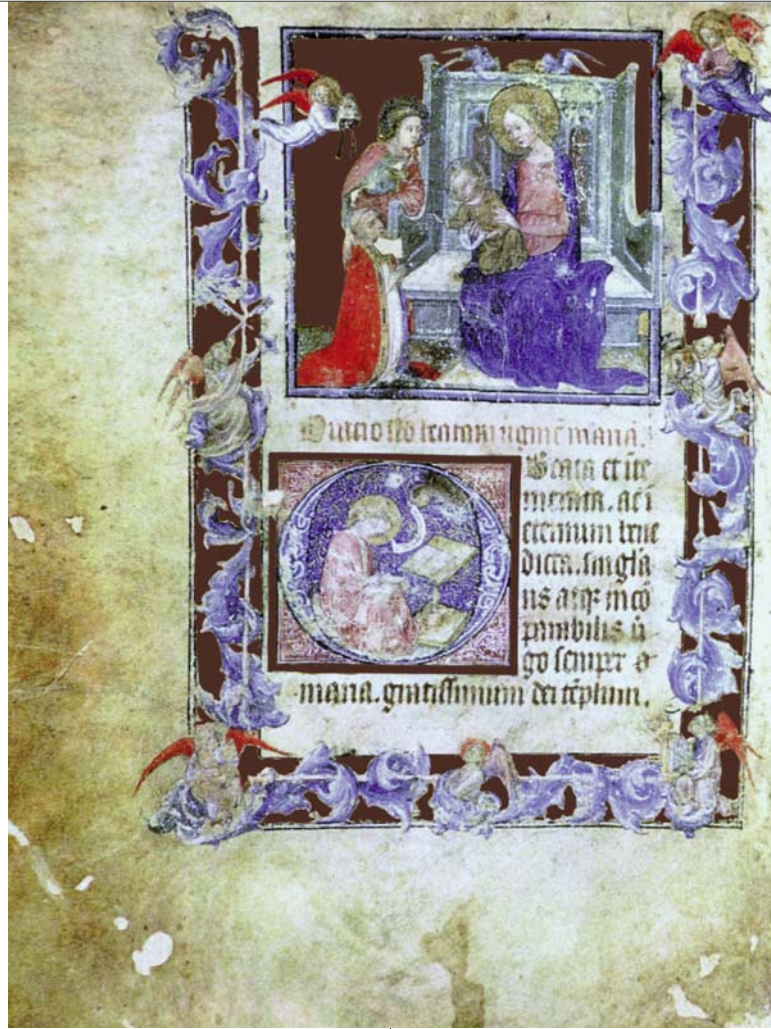 Oracio ad beatam virginē mariā.
O Beata et īte
merata. ac ī
eternum bene
dicta. singla
ris atq incō
parabilis ū
go semper
maria. gratissimum dei tēplum.